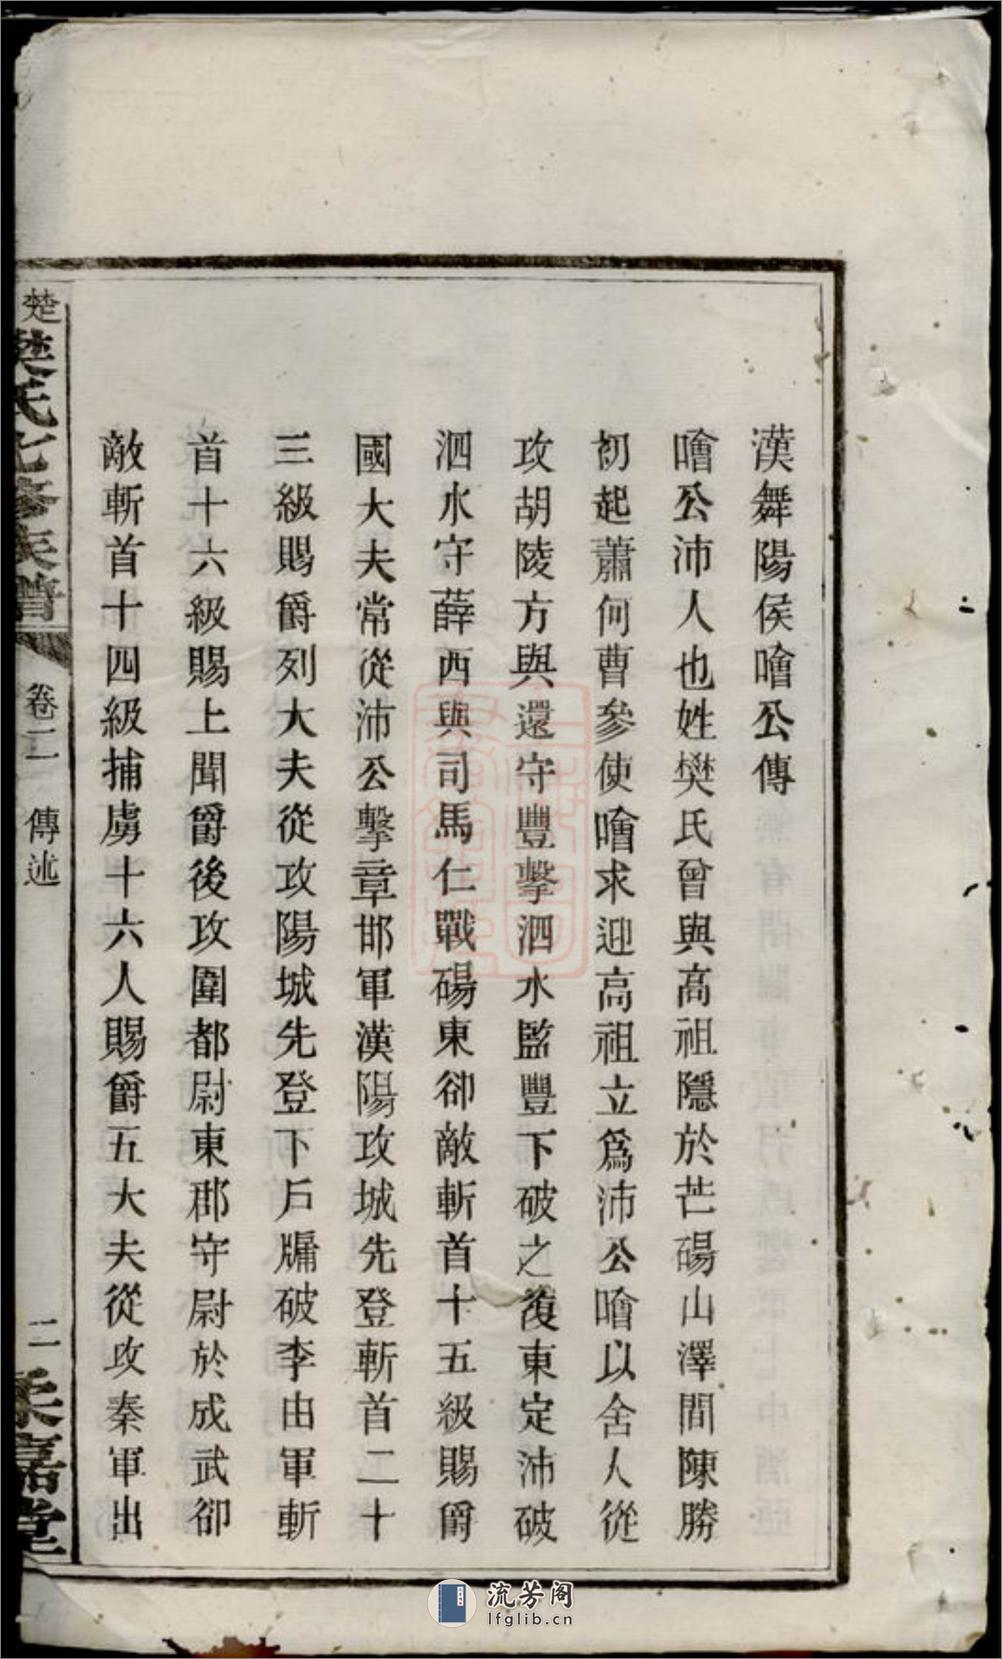 漢舞陽侯噲公傳
噲公沛人也姓樊氏曾與高祖隱於芒碭山澤間陳勝
初起蕭何曹參使噲求迎高祖立爲沛公噲以舍人從
攻胡陵方與還守豐擊泗水監豐下破之復東定沛破
泗水守薛西與司馬仁戰碭東卻敵斬首十五級賜爵
國大夫常從沛公擊章邯軍漢陽攻城先登斬首二十
三級賜爵列大夫從攻陽城先登下戶牖破李由軍斬
首十六級賜上聞爵後攻圍都尉東郡守尉於成武卻
敵斬首十四級捕虜十六人賜爵五大夫從攻秦軍出
楚樊氏七修族譜
卷二 傳述
二
嘉堂
流芳阁
lfglib.cn